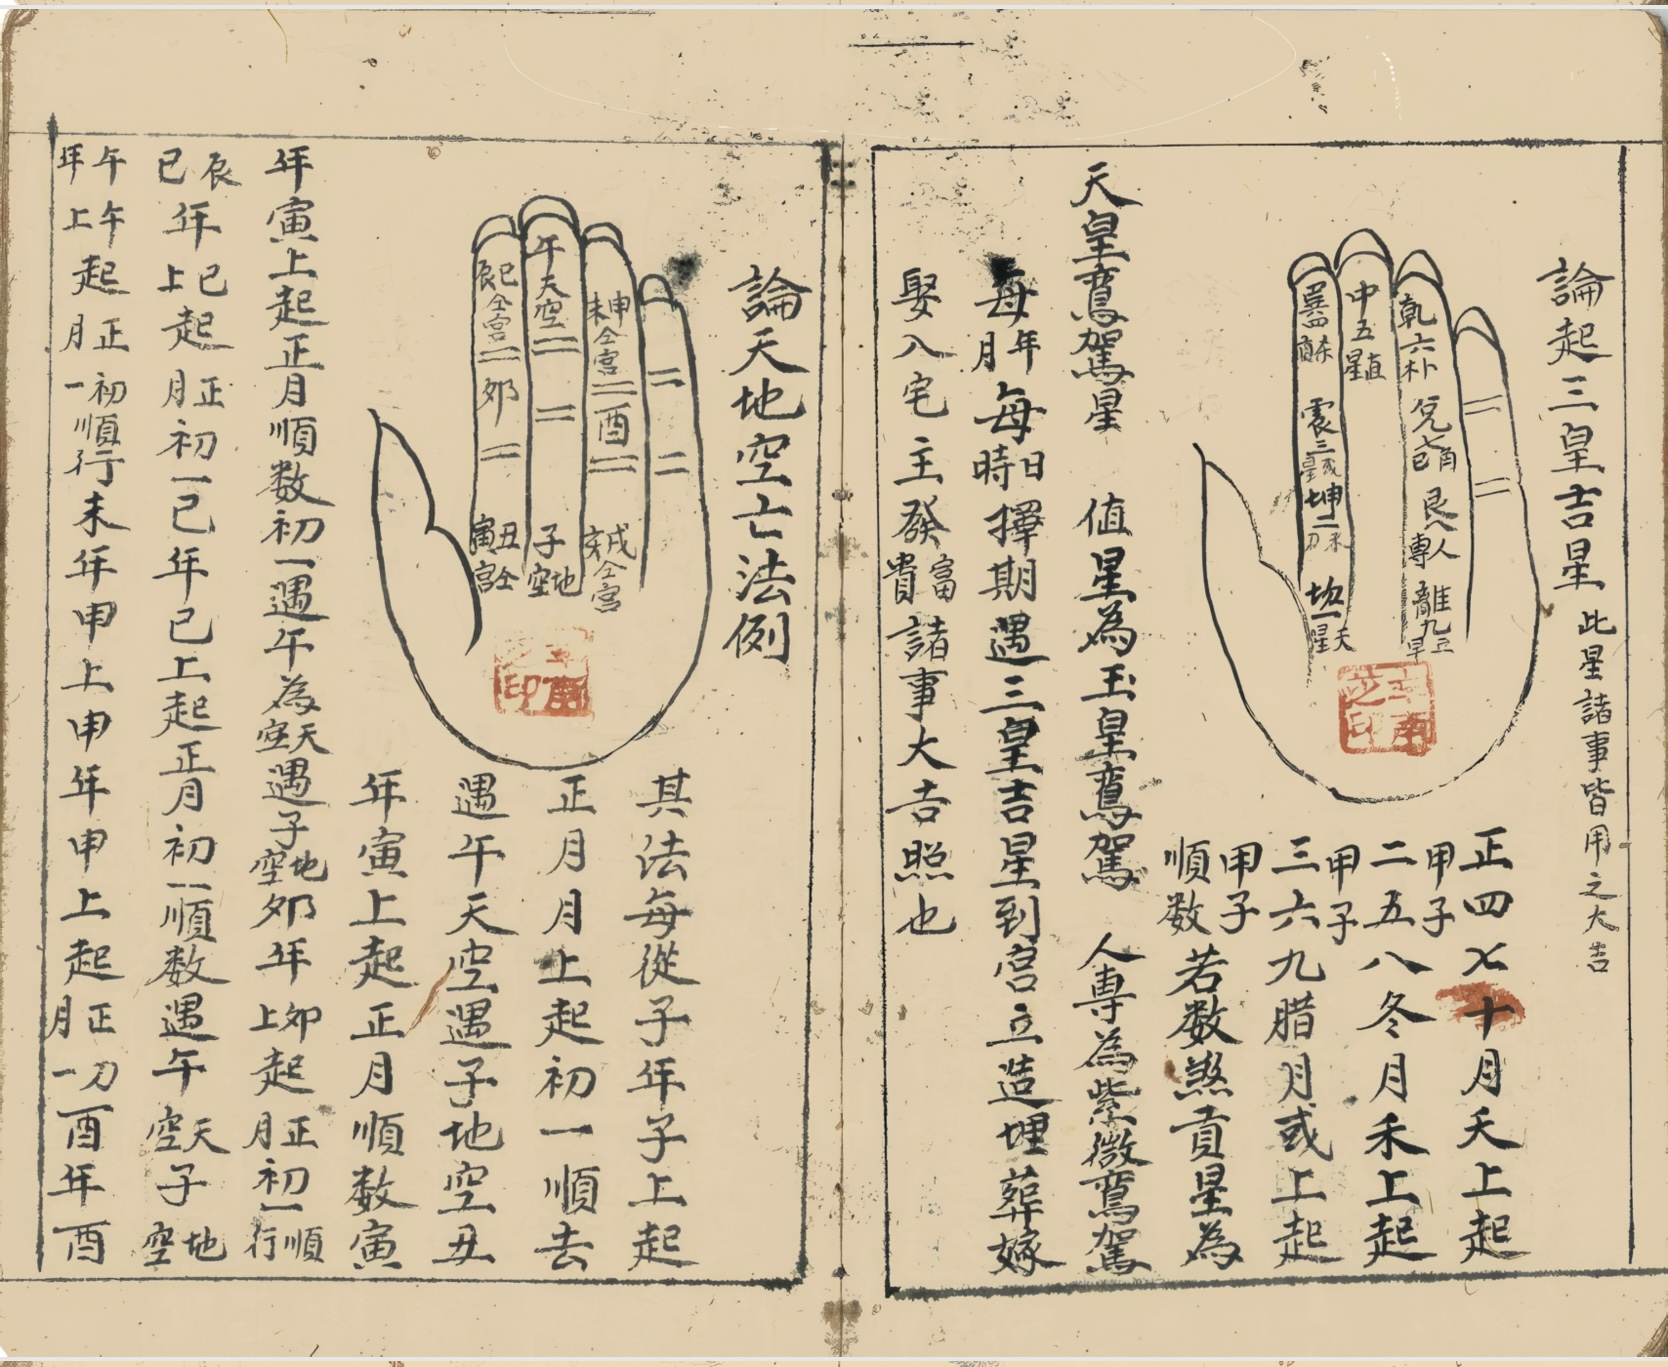 論起三皇吉星 此星諸事皆用之大吉
巽四
中五直星
乾六朴
震三
坤二禾刀
坎一天星
兌七角
艮八人專
離九立早
正四七十月天上起
甲子
二五八冬月禾上起
甲子
三六九腊月或上起
甲子
順数若数煞貢星為
天皇鸞駕星 值星為玉皇鸞駕 人專為紫微鸞駕
每年月每日時擇期遇三皇吉星到宮立造埋葬嫁
娶入宅主發富貴諸事大吉照也
論天地空亡法例
巳辰仝宮
卯
丑寅仝宮
午天空
子地空
申未仝宮
酉
戌亥仝宮
其法每從子年子上起
正月月上起初一順去
遇午天空遇子地空丑
年寅上起正月順数寅
年寅上起正月順数初一遇午為天空遇子地空卯年卯上起正月初一順行
辰巳年巳上起正月初一巳年巳上起正月初一順数遇午天空子地空
午年午上起正月初一順行未年申上申年申上起正月一刀酉年酉